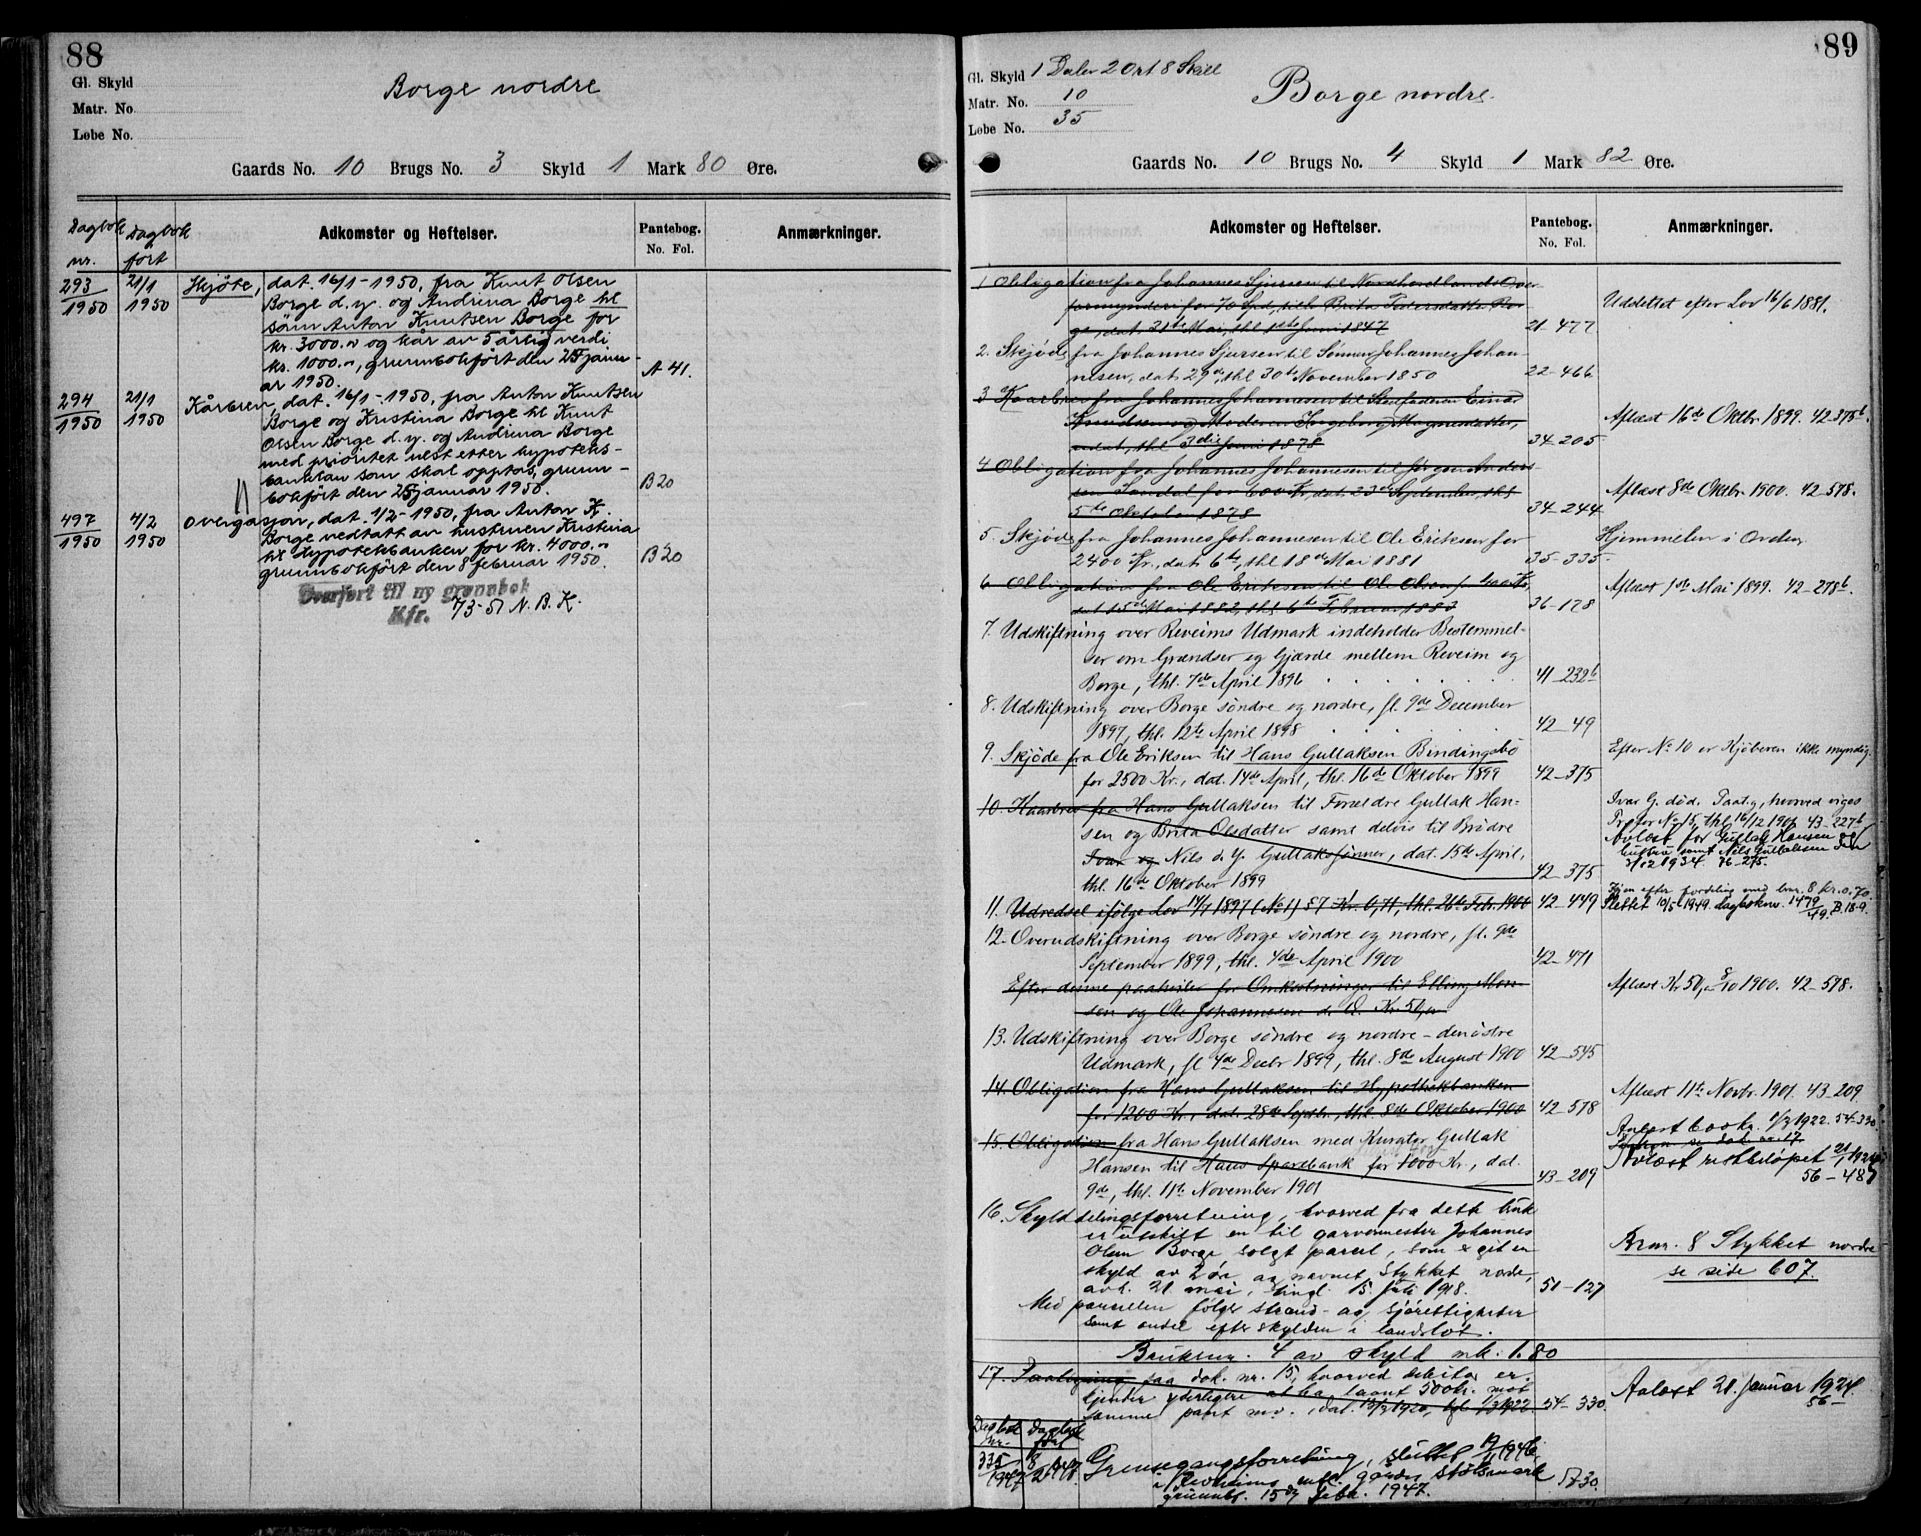 88
Gl. Skyld
Matr. No.
Løbe No.
Borge nordre
Gaards No. 10 Brugs No. 3 Skyld 1 Mark 80 Øre.
Dagbok nr.
Dagbok ført
Adkomster og Heftelser.
Pantebog.
No. Fol.
Anmærkninger.
293/1950 21/1 1950 Skjøte, dat. 16/1-1950, fra Knut Olsen
Borge d.y. og Andrina Borge til
sønn Anton Knutsen Borge for
kr. 3000.- og kår av 5 årlig verdi
kr. 1000.-, grunnbokført den 25 janu-
ar 1950. A 41.
294/1950 21/1 1950 Kårbrev, dat. 16/1-1950, fra Anton Knutsen
Borge og Kristina Borge til Knut
Olsen Borge d.y. og Andrina Borge
med prioritet nest etter hypotek-
banklån som skal opptas, grunn-
bokført den 25 januar 1950. B 20
497/1950 4/2 1950 Obligasjon, dat. 1/2-1950, fra Anton K.
Borge vedtatt av hustruen Kristina
til Hypotekbanken for kr. 4000.-
grunnbokført den 8 februar 1950. B 20
Overført til ny grunnbok
Kfr. 7/3-51 N.B.K.
89
Gl. Skyld 1 Daler 2 Ort 8 Skill
Matr. No. 10
Løbe No. 35
Borge nordre
Gaards No. 10 Brugs No. 4 Skyld 1 Mark 82 Øre.
Adkomster og Heftelser.
Pantebog.
No. Fol.
Anmærkninger.
1 Obligation fra Johannes Sjursen til Nordhordlands Over-
formynderi for 70 Spd, til Brita Pedersdatter Bor-
ge, dat. 31te Mai, thl. 1ste Juni 1847 21-477 Udslettet efter Lov 16/6 1881.
2. Skjøde fra Johannes Sjursen til Sønnen Johannes Johan-
nesen, dat. 29de, thl. 30te November 1850 22-466
3 Kaarbrev fra Johannes Johannesen til Stedfaderen Einar
Knudsen og Moderen Ingeborg Magnesdatter,
udat., thl. 3die Juni 1878 34-205 Aflæst 16de Oktbr. 1899. 42-375b.
4 Obligation fra Johannes Johannesen til Jørgen Anders-
sen Sandal for 600 Kr, dat. 23de September, thl.
5te Oktober 1878 34-244 Aflæst 8de Oktbr. 1900. 42-578.
5. Skjøde fra Johannes Johannesen til Ole Eriksen for
2400 Kr., dat. 6te, thl. 18de Mai 1881 35-335 Hjemmelen i Orden
6 Obligation fra Ole Eriksen til Ole Olsen f.
dat. 15de Mai 1882, thl. 6te Februar 1883 36-178 Aflæst 1ste Mai 1899. 42-278b.
7. Udskiftning over Reveims Udmark indeholder Bestemmel-
ser om Grændser og Gjærde mellem Reveim og
Borge, thl. 7de April 1896 41-232b
8. Udskiftning over Borge søndre og nordre, sl. 9de December
1897, thl. 12te April 1898 42-49
9. Skjøde fra Ole Eriksen til Hans Gullaksen Bindingsbø
for 2500 Kr., dat. 14de April, thl. 16de Oktober 1899 42-375 Efter No 10 er Kjøberen ikke myndig.
10. Kaarbrev fra Hans Gullaksen til Forældre Gullak Han-
sen og Brita Olsdatter samt delvis til Brødre
Ivar og Nils d. y. Gullakssønner, dat. 15de April,
thl. 16de Oktober 1899 42-375
Ivar G. død. Paateg, hvorved viges
Prior. for No 15, thl. 16/12 1901 43-227b
Avlæst for Gullak Hansen og
hustru samt Nils Gullaksen den
3/12 1934 76-275.
11. Udredsel ifølge Lov 14/7 1897 (No 1) § 7 Kr. 0,71, thl. 26te Febr. 1900 42-449
Igjen efter fordeling med bnr. 8 kr. 0,70
Slettet 10/5 1949. dagboknr. 1479/49. B.18-9.
12. Overudskiftning over Borge søndre og nordre, sl. 9de
September 1899, thl. 4de April 1900 42-471
Efter denne paahviler for Omkostninger til Elling Mon-
sen og Ole Johannesen d. Æ. Kr. 50,00 Aflæst Kr 50,- 8/10 1900. 42-578.
13. Udskiftning over Borge søndre og nordre - den østre
Udmark, sl. 4de Decbr. 1899, thl. 8de August 1900 42-545
14. Obligation fra Hans Gullaksen til Hypothekbanken
for 1200 Kr., dat. 28de Septbr., thl. 8de Oktober 1900 42-578 Aflæst 11te Novbr. 1901. 43-209
15. Obligation fra Hans Gullaksen med Kurator Gullak
Hansen til Hans Sparebank for 1000 Kr., dat.
9de, thl. 11te November 1901 43-209
Avlæst 600 kr. 1/3 1922. 54-330
se dok. nr. 17
Avlæst restbeløpet 21/1 1924
56-487
16. Skylddelingsforretning, hvorved fra dette bruk
er utskilt en til garvermester Johannes
Olsen Borge solgt parcel, som er git en
skyld av 2 øre og navnet Stykket nordre,
avh. 21 mai, tingl. 15. juli 1918. 51-127
Bnr. 8 Stykket nordre
se side 607.
Med parcellen følger strand- og sjørettigheter
samt andel efter skylden i landslot.
Bruksnr. 4 av skyld mk. 1.80
17. Paategning paa dok. nr. 15, hvorved debitor er-
kjender yderligere at ha laant 500 kr. mot
samme pant m.v., dat. 19/2 1920, tgl. 1/3 1922 54-330.
Avlæst 21. januar 1924
56-
Dagbok nr. Dagbok ført
335/1947 8 1947 Grensegangsforretning, sluttet 1946
i Revheims m.fl. gårders
grunnb. 15 de febr. 1947. 30.